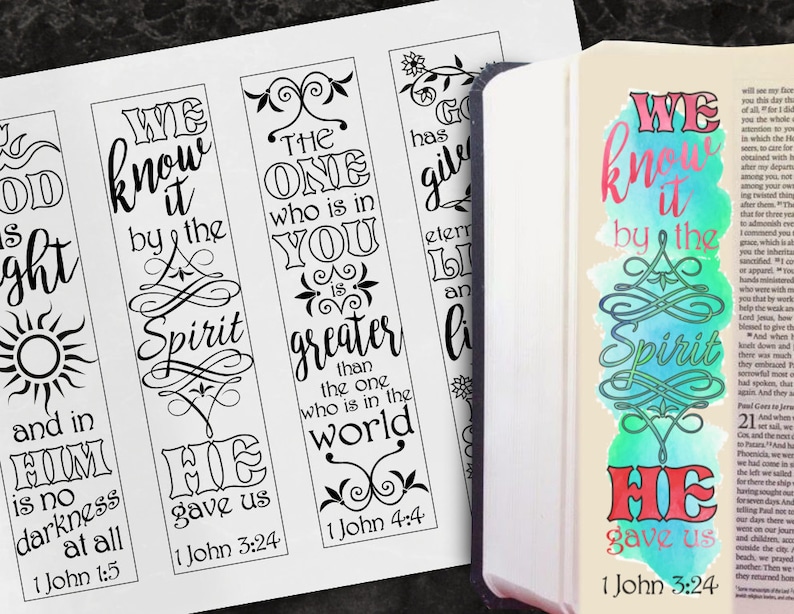 OD
is
ght
and in
HIM
is no
darkness
at all
1 John 1:5
WE
know
it
by the
Spirit
HE
gave us
1 John 3:24
THE
ONE
who is in
YOU
is
greater
than
the one
who is in the
world
1 John 4:4
GO
has
give
etern
LI
an
li
WE
know
it
by the
Spirit
HE
gave us
1 John 3:24
will see my face
you this day that
of all, 27 for I did
you the whole
attention to yo
in which the H
seers, to care for
obtained with h
after my depart
among you, not
among your own
ing twisted thing
after them. 31 The
that for three yea
to admonish ever
I commend you
grace, which is ab
you the inheritan
sanctified. 33 I c
or apparel. 34 Yo
hands ministered
who were with m
you that by work
help the weak and
Lord Jesus, how
blessed to give th
36 And when h
knelt down and
there was much
they embraced Pa
sorrowful most o
had spoken, that
again. And they ac
Paul Goes to Jeru
21 And when v
set sail, we
Cos, and the next d
to Patara. 2 And ha
Phoenicia, we wen
we had come in s
the left we sailed
for there the ship v
having sought out
for seven days. And
telling Paul not to
our days there w
went on our journ
and children, acc
outside the city. A
beach, we prayed
another. Then we
they returned hom